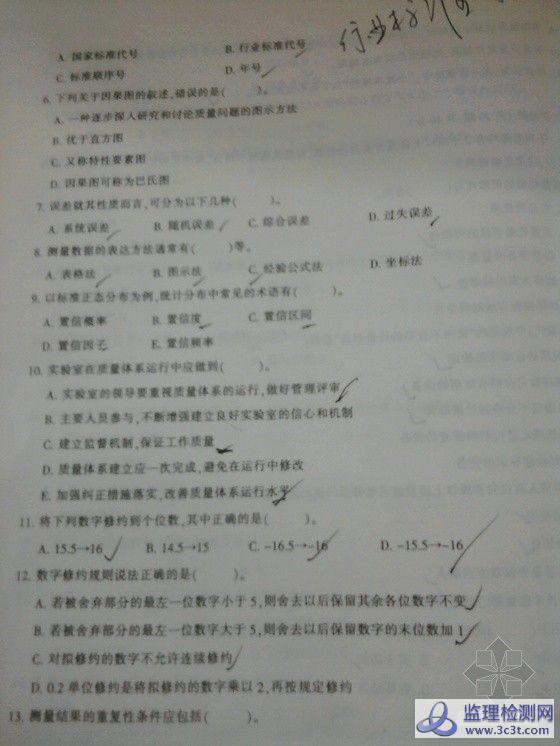 A. 国家标准代号 B. 行业标准代号
C. 标准顺序号 D. 年号
6. 下列关于因果图的叙述,错误的是( )。
A. 一种逐步深入研究和讨论质量问题的图示方法
B. 优于直方图
C. 又称特性要素图
D. 因果图可称为巴氏图
7. 误差就其性质而言,可分为以下几种( )。
A. 系统误差 B. 随机误差 C. 综合误差 D. 过失误差
8. 测量数据的表达方法通常有( )等。
A. 表格法 B. 图示法 C. 经验公式法 D. 坐标法
9. 以标准正态分布为例,统计分布中常见的术语有( )。
A. 置信概率 B. 置信度 C. 置信区间
D. 置信因子 E. 置信频率
10. 实验室在质量体系运行中应做到( )。
A. 实验室的领导要重视质量体系的运行,做好管理评审
B. 主要人员参与,不断增强建立良好实验室的信心和机制
C. 建立监督机制,保证工作质量
D. 质量体系建立应一次完成,避免在运行中修改
E. 加强纠正措施落实,改善质量体系运行水平
11. 将下列数字修约到个位数,其中正确的是( )。
A. 15.5→16 B. 14.5→15 C. -16.5→-16 D. -15.5→-16
12. 数字修约规则说法正确的是( )。
A. 若被舍弃部分的最左一位数字小于5,则舍去以后保留其余各位数字不变
B. 若被舍弃部分的最左一位数字大于5,则舍去以后保留数字的末位数加1
C. 对拟修约的数字不允许连续修约
D. 0.2单位修约是将拟修约的数字乘以2,再按规定修约
13. 测量结果的重复性条件应包括( )。
监理检测网
www.3c3t.com